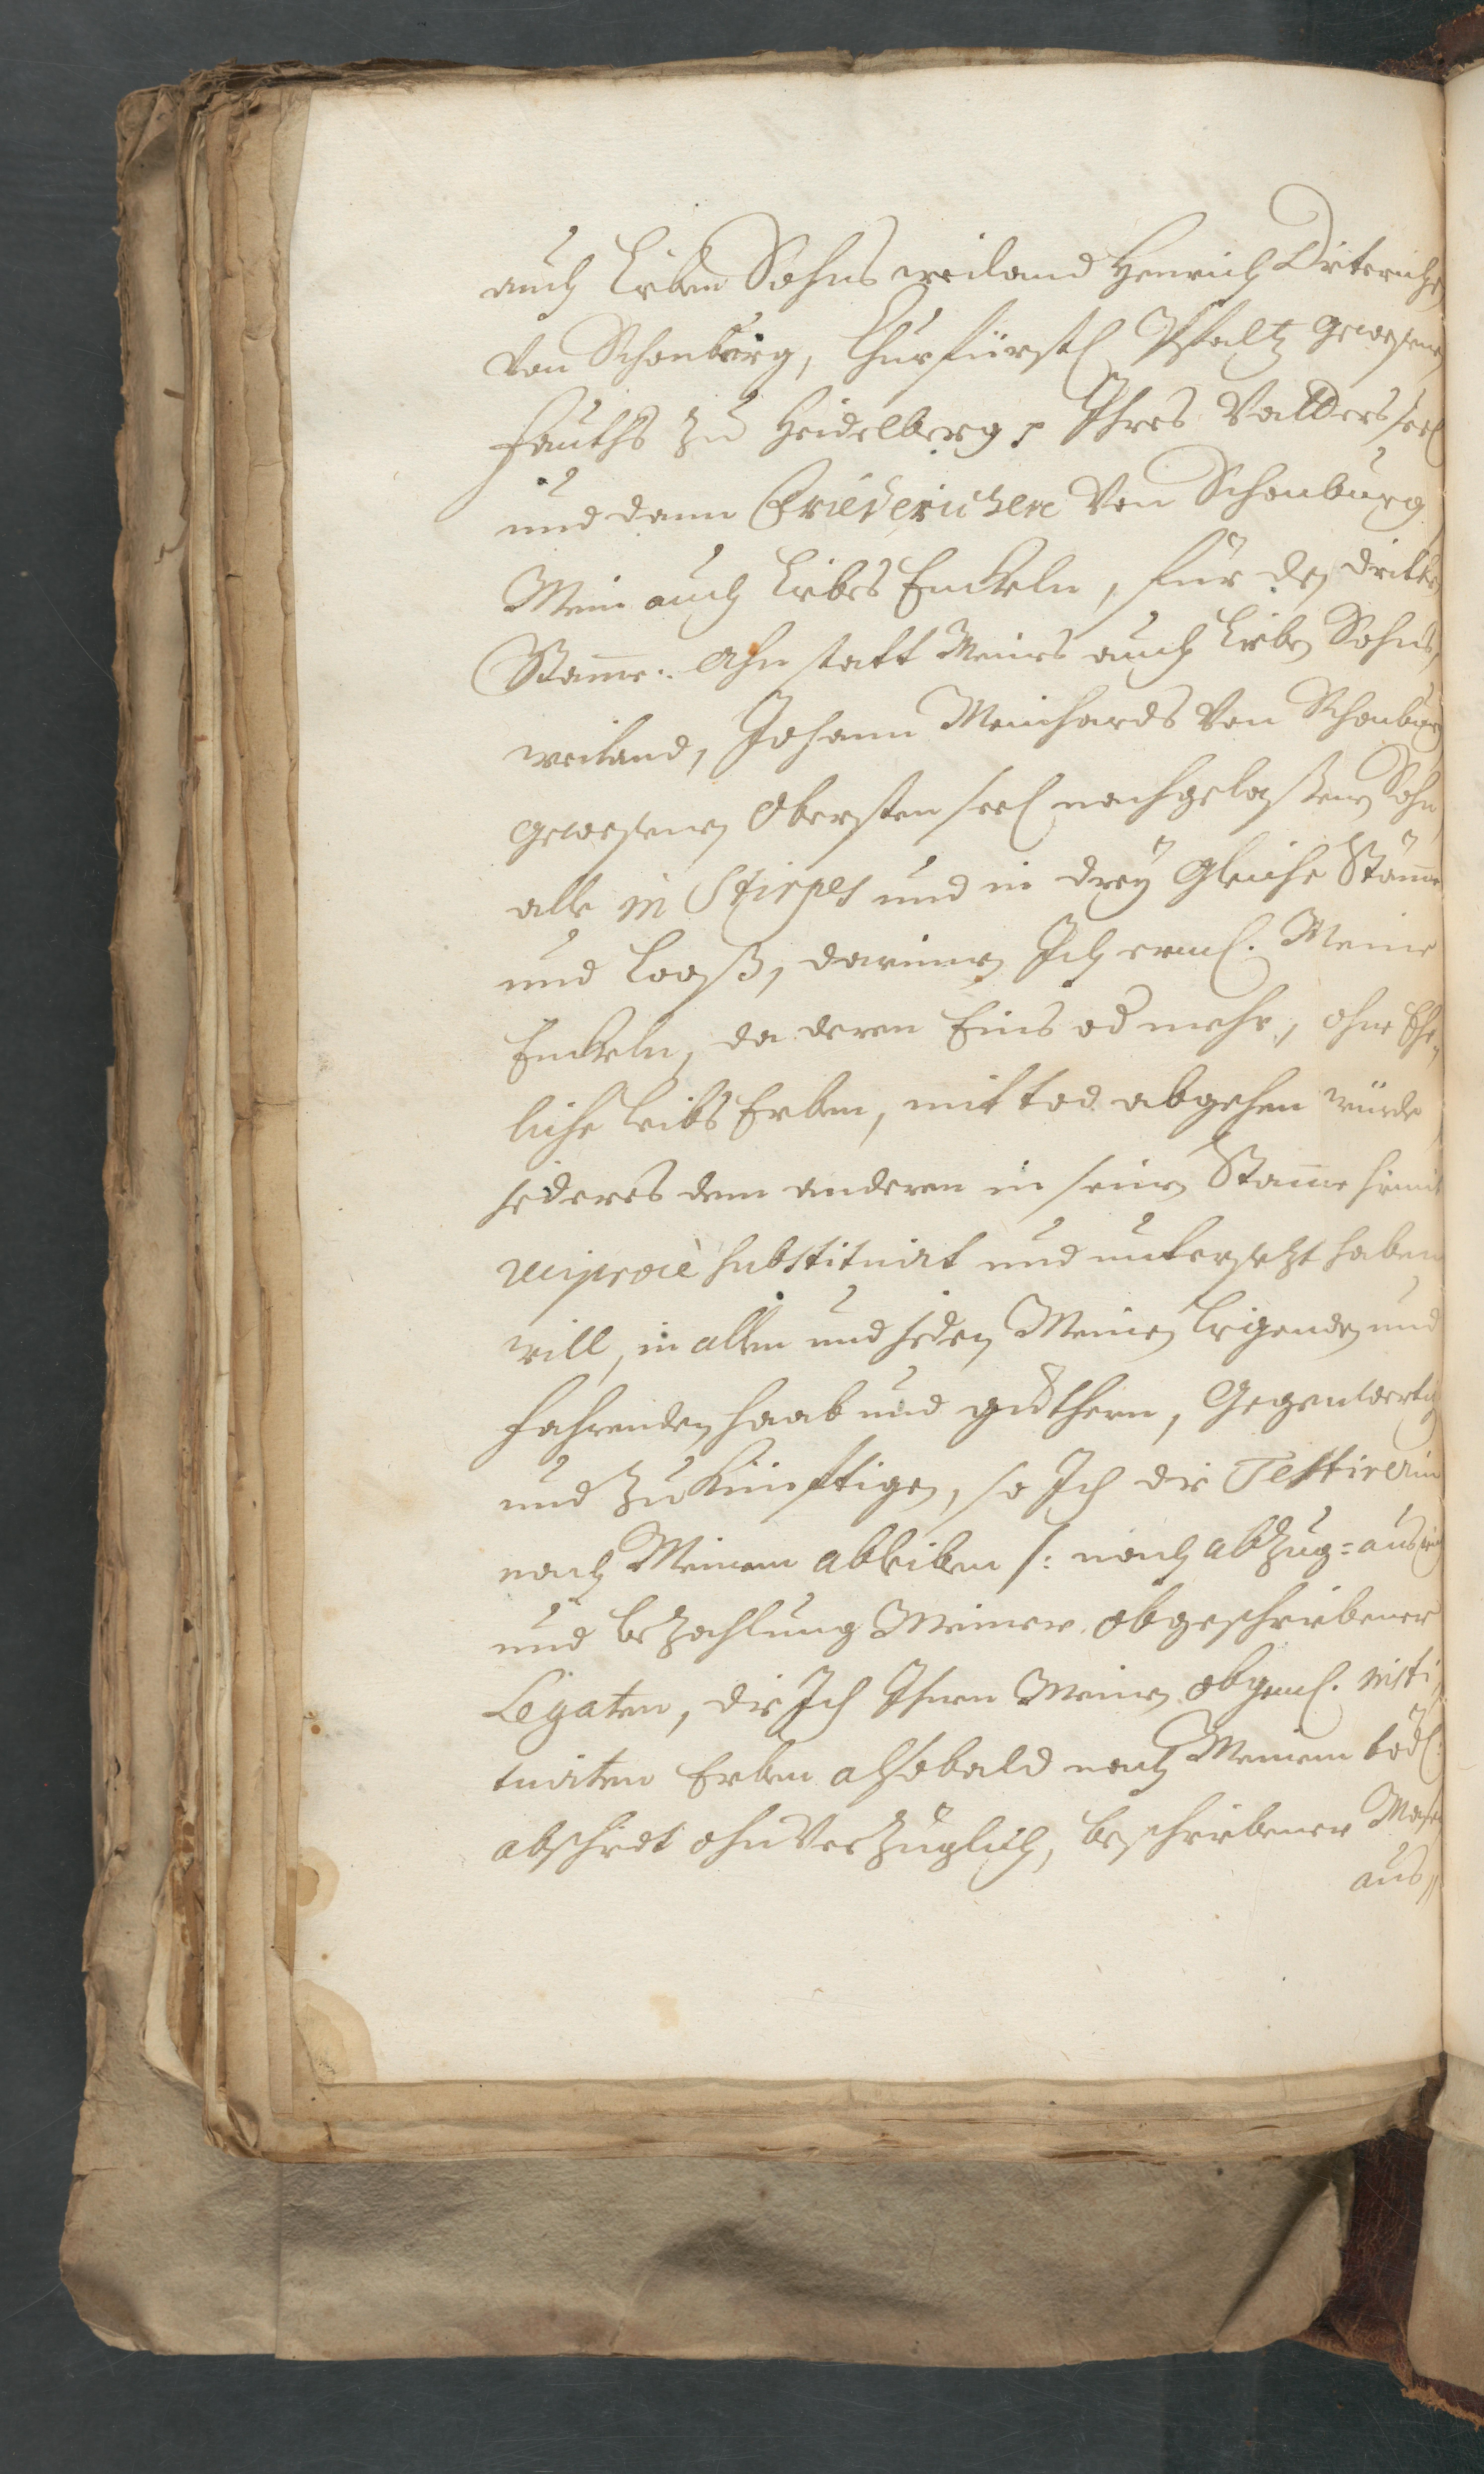 auch Lieben Sohns weiland Henrich Dieterichs
von Schonburg, Churfürstl Pfaltz gewesene
Fauths zu Heidelberg, Ihres Vatters seel
und dann Friederichen von Schonburg
Mein auch Liebes Enckeln, für dẽ dritte
Stam̅e. Ahn statt Meines auch Lieben Sohns,
weiland, Johann Meinhards von Schonburg
gewesenen Obersten seel nachgelaßenen Sohn
alle in Stirpes und in drey gleiche Stäm̅e
und Looß, darinnen Ich erml. Meine
Enckeln, da deren Eins od mehr, ohne Ehe-
liche Leibs Erben, mit tod abgehen würde
jederes dem anderen in seinen Stam̅e hiemit
reciprocè substituirt und untersetzt haben
will, in allen und jeden Meinen Ligenden und
fahrenden haab und güthern, Gegenwertig
und Zukünfftigen, so Ich die Testirerin
nach Meinem ableiben /: nach abzug= aus
und bezahlung Meiner obgeschriebener
Legaten, die Ich Ihnen Meinen obgeml. insti,
tuirten Erben alsobald nach Meinem tödl:
abschiedt ohnverzüglich, beschriebener Masen
aus,,